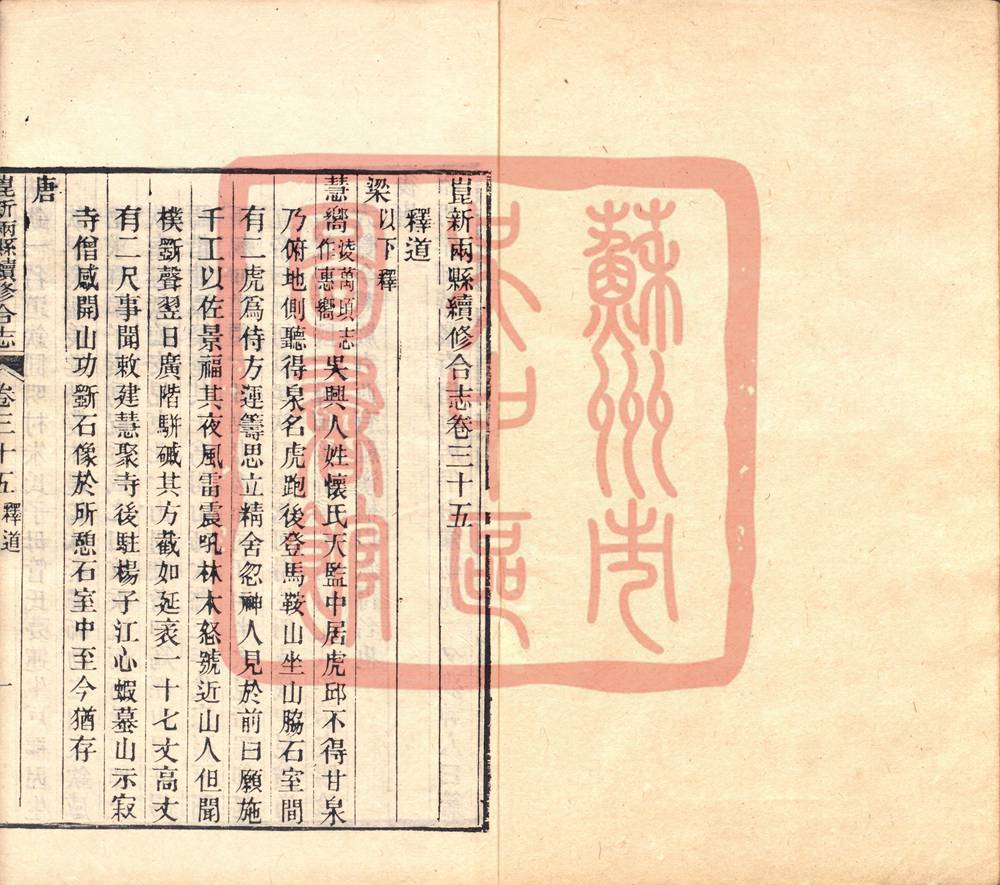 崑新兩縣續修合志卷三十五
釋道
梁以下釋
慧嚮淩萬頃志作惠嚮吳興人姓懷氏天監中居虎邱不得甘泉
乃俯地側聽得泉名虎跑後登馬鞍山坐山脇石室間
有二虎爲侍方運籌思立精舍忽神人見於前曰願施
千工以佐景福其夜風雷震吼林木怒號近山人但聞
樸斵聲翌日廣階駢磩其方截如延袤一十七丈高丈
有二尺事聞敕建慧聚寺後駐楊子江心蝦蟇山示寂
寺僧感開山功斵石像於所憩石室中至今猶存
唐
崑新兩縣續修合志 卷三十五 釋道 一
蘇州市
吳中區
圖書館